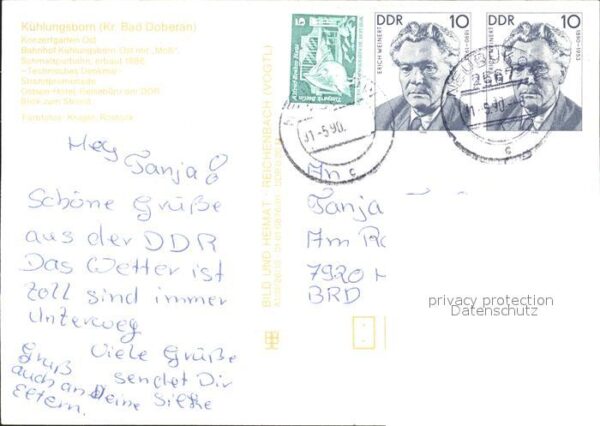 Kühlungsborn (Kr. Bad Doberan)
Konzertgarten Ost
Bahnhof Kühlungsborn Ost mit „Molli“,
Schmalspurbahn, erbaut 1886
- Technisches Denkmal -
Strandpromenade
Ostsee-Hotel, Reisebüro der DDR
Blick zum Strand
Farbfotos: Rostock
BILD UND HEIMAT · REICHENBACH (VOGTL)
5
DDR
DDR 10
ERICH WEINERT
1890-1953
DDR 10
1890-1953
01.-5.90.
c
01.-5.90.
c
Hey
Tanja!
Schöne Grüße
aus der DDR
Das Wetter ist
toll sind immer
unterweg
Viele Grüße
sendet Dir
Deine Silke
Gruß
auch an
Eltern.
An
Tanja
Am
7920
BRD
privacy protection
Datenschutz